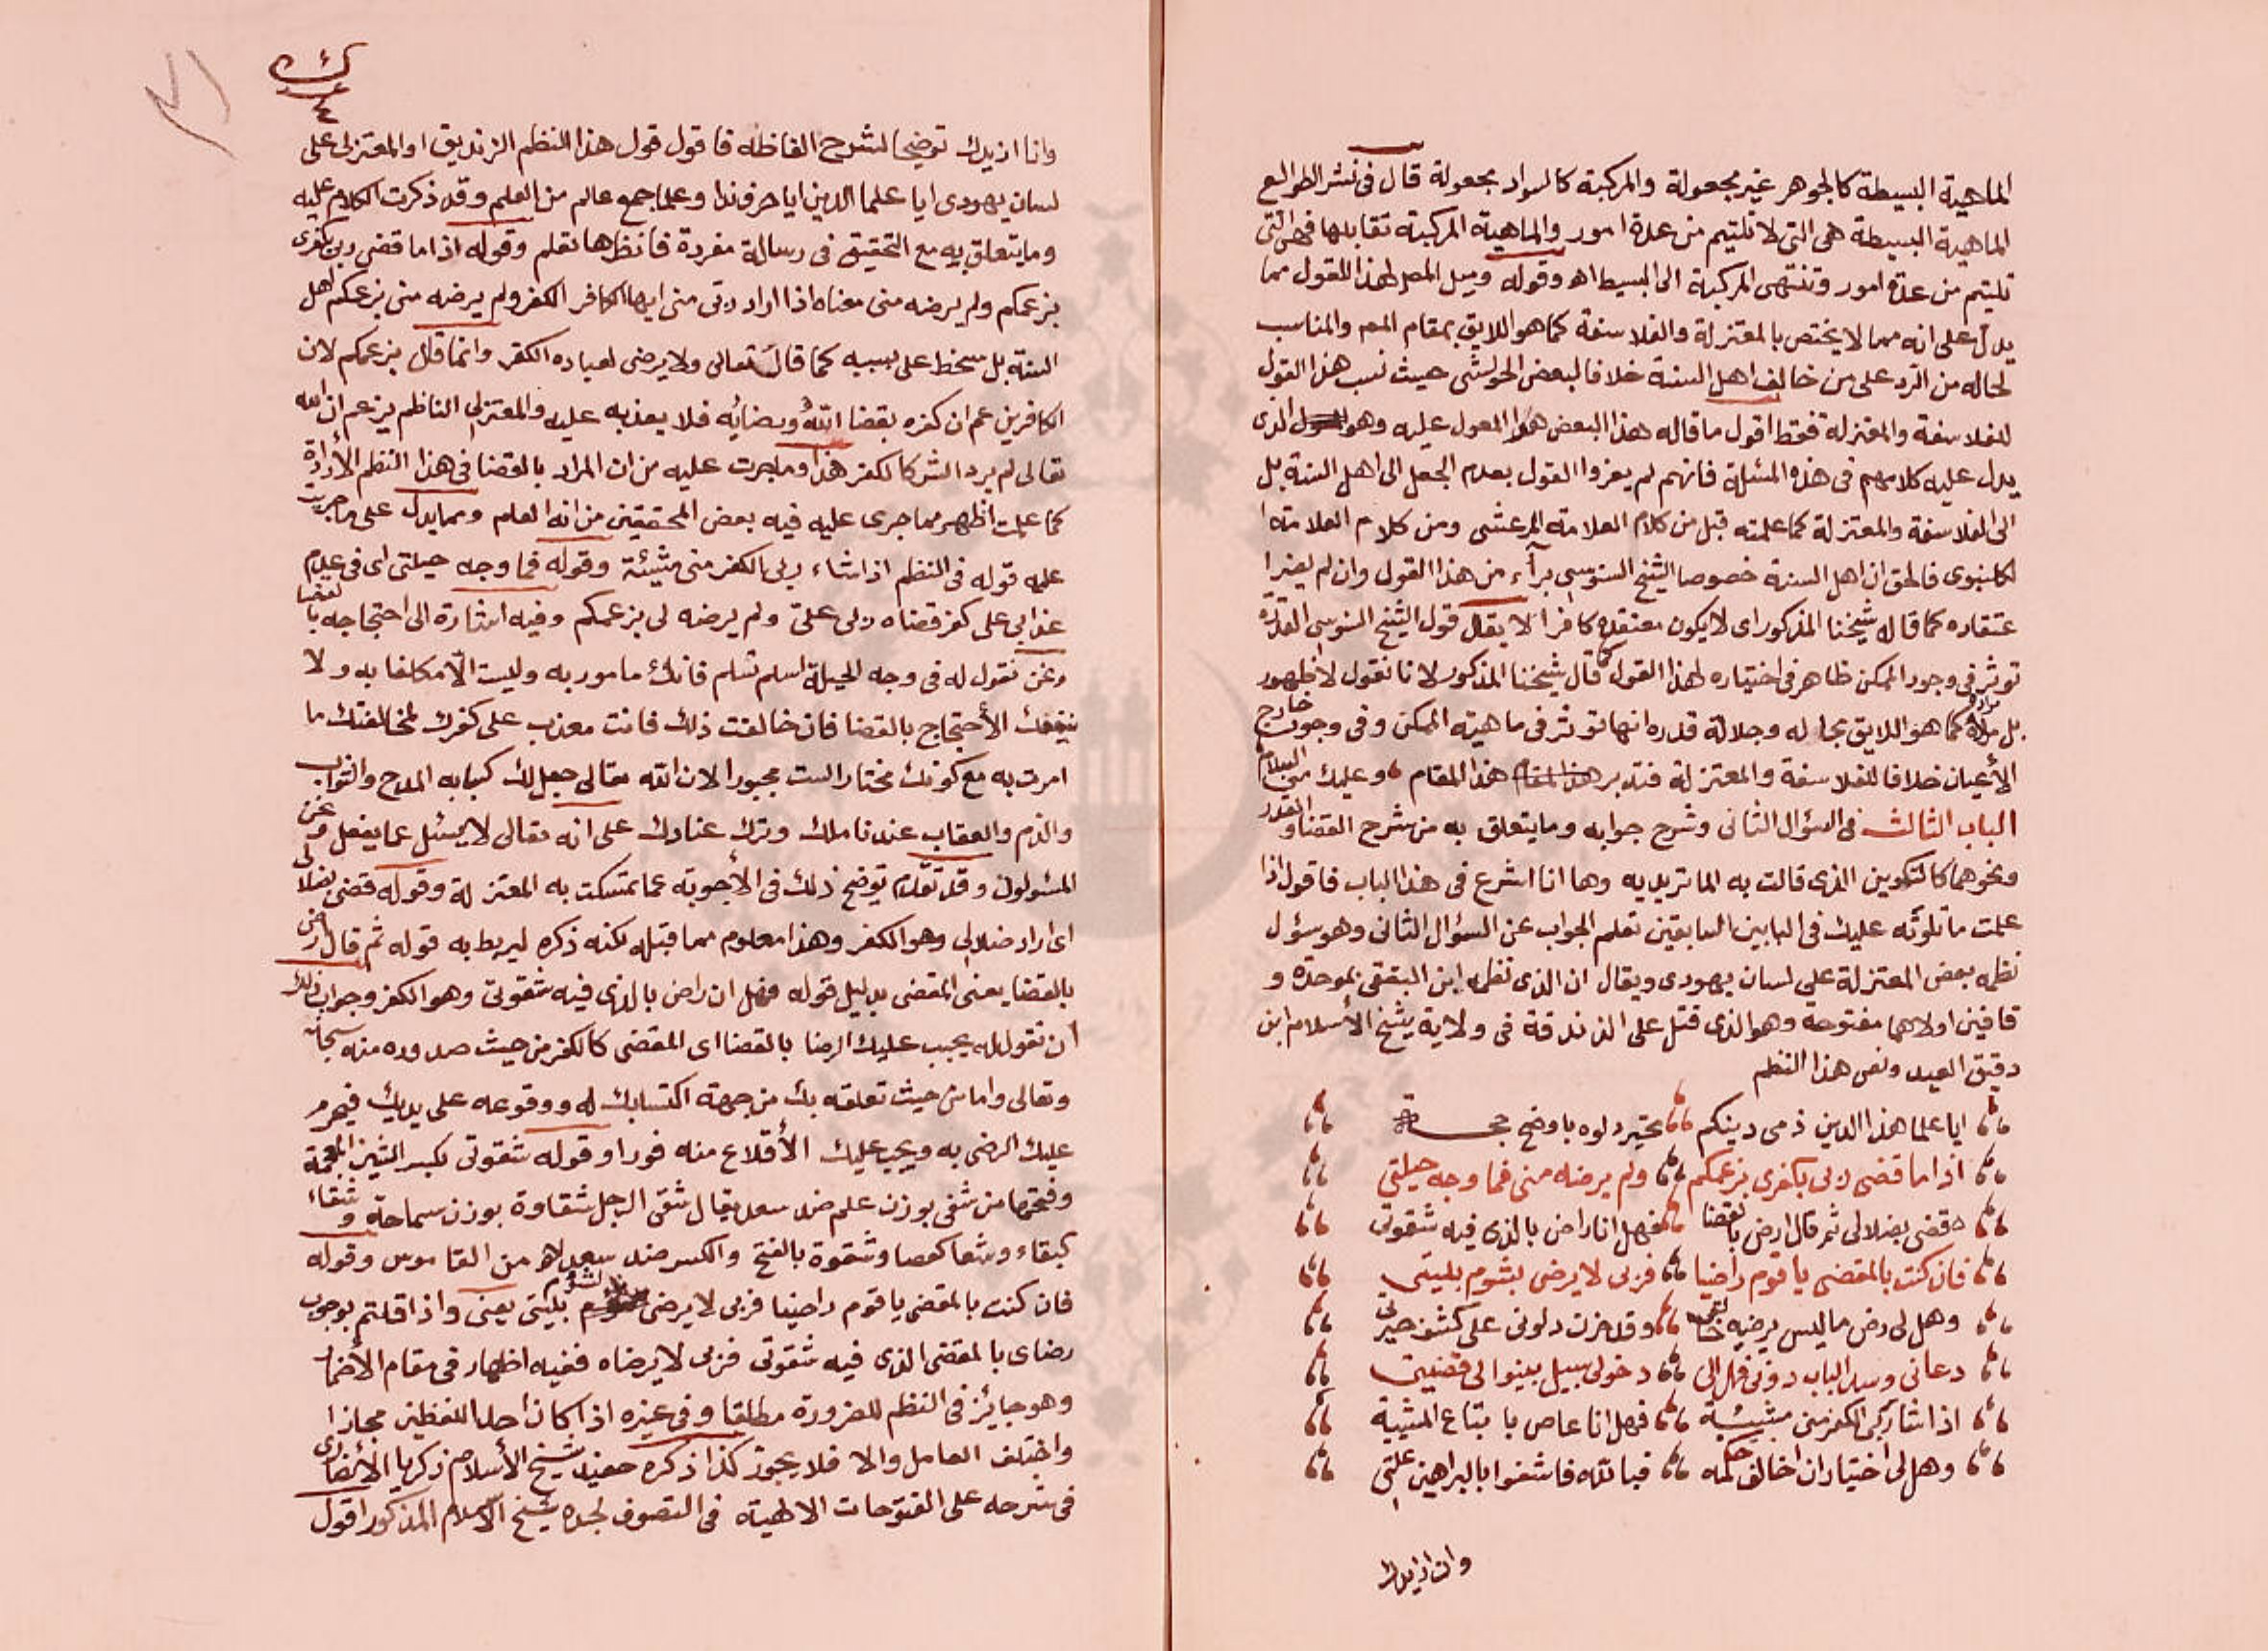 الماهية البسيطة كالجوهر غير مجعولة والمركبة كالسواد مجعولة قال فى نشر الطوالع
الماهية البسيطة هى التى لا تلتيم من عدة امور والماهية المركبة تقابلها فهى التى
تلتيم من عدة امور وتنتهى المركبة الى البسيط اه وقوله وميل المص لهذا القول مما
يدل على انه مما لا يختص بالمعتزلة والفلاسفة كما هو اللايق بمقام المم والمناسب
لحاله من الرد على من خالف اهل السنة خلافا لبعض الحواشى حيث نسب هذا القول
للفلاسفة والمعتزلة فقط اقول ما قاله هذا البعض هو المعول عليه وهو الذى
يدل عليه كلامهم فى هذه المسئلة فانهم لم يعزوا القول بعدم الجعل الى اهل السنة بل
الى الفلاسفة والمعتزلة كما علمته قبل من كلام العلامة المرعشى ومن كلام العلامة ا
لكلنبوى فالحق ان اهل السنة خصوصا الشيخ السنوسى برآء من هذا القول وان لم يضر ا
عتقاده كما قاله شيخنا المذكور اى لا يكون معتقده كافرا لا يقال قول الشيخ السنوسى القدرة
توثر فى وجود الممكن ظاهر فى اختياره لهذا القول كما قال شيخنا المذكور لانا نقول لا ظهور
بل مراده كما هو اللايق بحاله وجلالة قدره انها توثر فى ماهية الممكن وفى وجوده خارج
الأعيان خلافا للفلاسفة والمعتزلة فتدبر هذا المقام وعليك منى السلام
الباب الثالث فى السؤال الثانى وشرح جوابه وما يتعلق به من شرح القضا والقدر
ونحوهما كالتكوين الذى قالت به الماتريديه وها انا اشرع فى هذا الباب فاقول اذا
علمت ما تلوته عليك فى البابين السابقين تعلم الجواب عن السؤال الثانى وهو سؤل
نظمه بعض المعتزلة على لسان يهودى ويقال ان الذى نظمه ابن البققى بموحدة و
قافين اولاهما مفتوحة وهو الذى قتل على الزندقة فى ولاية شيخ الأسلام ابن
دقيق العيد ونص هذا النظم
ايا علما هذا الدين ذمى دينكم تحير دلوه باوضح حجة
اذا ما قضى ربى بكفرى بزعمكم ولم يرضه منى فما وجه حيلتى
قضى بضلالى ثم قال ارض بالقضا فهل انا راض بالذى فيه شقوتى
فان كنت بالمقضى يا قوم راضيا فربى لا يرضى بشوم بليتى
وهل لى رض ما ليس يرضيه خالقى وقد حرت دلونى على كشف حيرتى
دعانى وسد الباب دونى فهل الى دخولى سبيل بينوا لى قضيتى
اذا شا ربى الكفر منى مشيئة فهل انا عاص باتباع المشية
وهل لى اختيار ان اخالف حكمه فبالله فاشفوا بالبراهين علتى
وانا ازيدك
وانا ازيدك توضيحا لشرح الفاظه فاقول قول هذا النظم الزنديق او المعتزلى على
لسان يهودى ايا علما الدين ايا حرف ندا وعلما جمع عالم من العلم وقد ذكرت الكلام عليه
وما يتعلق به مع التحقيق فى رسالة مفردة فانظرها تعلم وقوله اذا ما قضى ربى بكفرى
بزعمكم ولم يرضه منى معناه اذا اراد ربى منى ايها الكافر الكفر ولم يرضه منى بزعمكم اهل
السنة بل سخط على بسببه كما قال تعالى ولا يرضى لعباده الكفر وانما قال بزعمكم لان
الكافر يزعم ان كفره بقضا الله وبرضايه فلا يعذبه عليه والمعتزلى الناظم يزعم ان الله
تعالى لم يرد الشر كالكفر هذا وما جريت عليه من ان المراد بالقضا فى هذا النظم الأرادة
كما علمت اظهر مما جرى عليه فيه بعض المحققين من انه العلم ومما يدل على ما جريت
عليه قوله فى النظم اذا شاء ربى الكفر منى مشيئة وقوله فما وجه حيلتى اى فى عدم
عذابى على كفر قضاه ربى على ولم يرضه لى بزعمكم وفيه اشارة الى احتجاجه بالقضا
ونحن نقول له فى وجه الحيلة اسلم تسلم فانك مامور به وليست الا مكلفا به ولا
ينفعك الأحتجاج بالقضا فان خالفت ذلك فانت معذب على كفرك لمخالفتك ما
امرت به مع كونك مختارا لست مجبورا لان الله تعالى جعل لك كسبا به المدح والثواب
والذم والعقاب عند تاملك وترك عنادك على انه تعالى لا يسئل عما يفعل ونحن
المسئولون وقد تقدم توضح ذلك فى الأجوبة عما تمسكت به المعتزلة وقوله قضى بضلالى
اى اراد ضلالى وهو الكفر وهذا معلوم مما قبله لكنه ذكره ليربط به قوله ثم قال ارض
بالقضا يعنى المقضى بدليل قوله فهل ان راض بالذى فيه شقوتى وهو الكفر وجواب ذلك
ان تقول له يجب عليك الرضا بالقضا اى المقضى كالكفر من حيث صدوره منه سبحانه
وتعالى واما من حيث تعلقه بك من جهة اكتسابك له ووقوعه على يديك فيحرم
عليك الرضى به ويجب عليك الأقلاع منه فورا وقوله شقوتى بكسر الشين المعجمة
وفتحها من شقى بوزن علم ضد سعد يقال شقى الرجل شقاوة بوزن سماحة وشقاء
كبقاء وشقا كعصا وشقوة بالفتح والكسر ضد سعد اه من القاموس وقوله
فان كنت بالمقضى يا قوم راضيا فربى لا يرضى لشوم بليتى يعنى واذا قلتم بوجوب
رضاى بالمقضى الذى فيه شقوتى فربى لا يرضاه ففيه اظهار فى مقام الأضمار
وهو جايز فى النظم للضرورة مطلقا وفى غيره اذا كان احد اللفظين مجازا
واختلف العامل والا فلا يجوز كذا ذكره حفيد شيخ الأسلام زكريا الأنصارى
فى شرحه على الفتوحات الالهية فى التصوف لجده شيخ الاسلام المذكور اقول